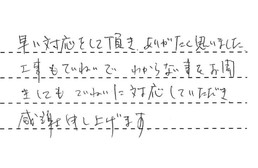 早い対応をして頂き ありがたく思いました
工事もていねいで わからない事をお聞
きしても ていねいに対応していただき
感謝申し上げます